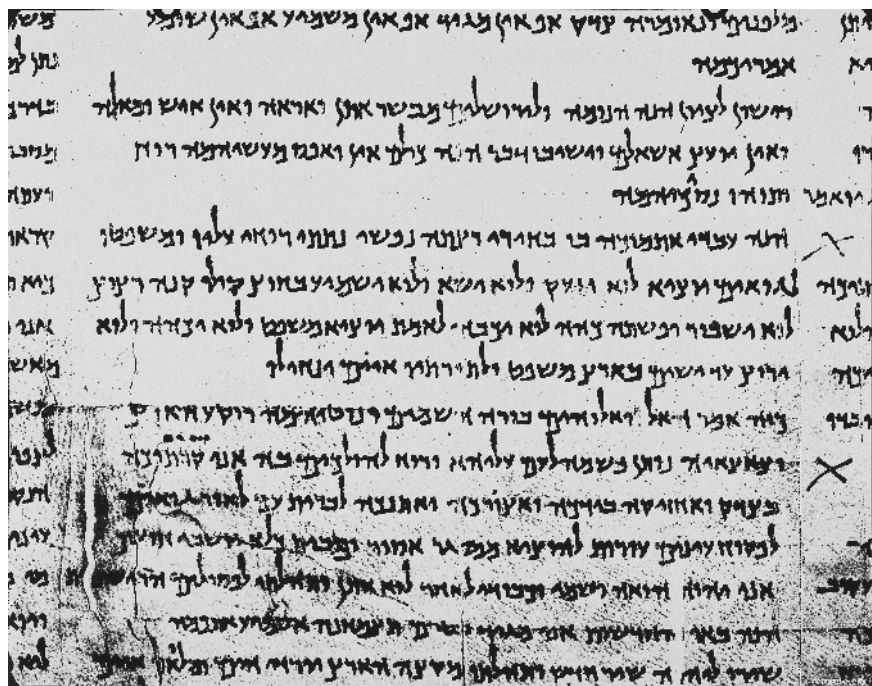 מלפנים ונאומרה צדיק אף אין מגיד אף אין משמיע אף אין שומע
אמריכמה
ראישון לציון הנה הנומה ולירושלים מבשר אתן ואראה ואין איש ומאלה
ואין יועץ אשאלם וישיבו דבר הנה כולם אין ואפס מעשיהמה רוח
ותוהו נסכיהמה
הנה עבדי אתמוכה בו בחירי רצתה נפשי נתתי רוחי עליו ומשפטו
לגואים יוציא לוא יזעק ולוא ישא ולוא ישמיע בחוץ קולו קנה רצוץ
לוא ישבור ופשתה כהה לוא יכבה לאמת יוציא משפט ולוא יכהה ולוא
ירוץ עד ישים בארץ משפט ולתורתיו איים ינחילו
כוה אמר האל האלוהים בורה השמים ונוטיהמה רוקע הארץ
וצאצאיה נותן נשמה לעם עליהא ורוח להולכים בה אני קרתיכה
בצדק ואחזיקה בידכה ואצורכה ואתנכה לברית עם לאור גואים
לפקוח עינים עורות להוציא ממסגר אסיר ומבית כלא יושבי חושך
אני יהוה הואה ושמי וכבודי לאחר לוא אתן ותהלתי לפסילים
הנה באו והחדשות אני מגיד ובטרם תצמחנה אשמיע אתכמה
שירו ליהוה שיר חדש ותהלתו מקצה הארץ יורדי הים ומלואו איים